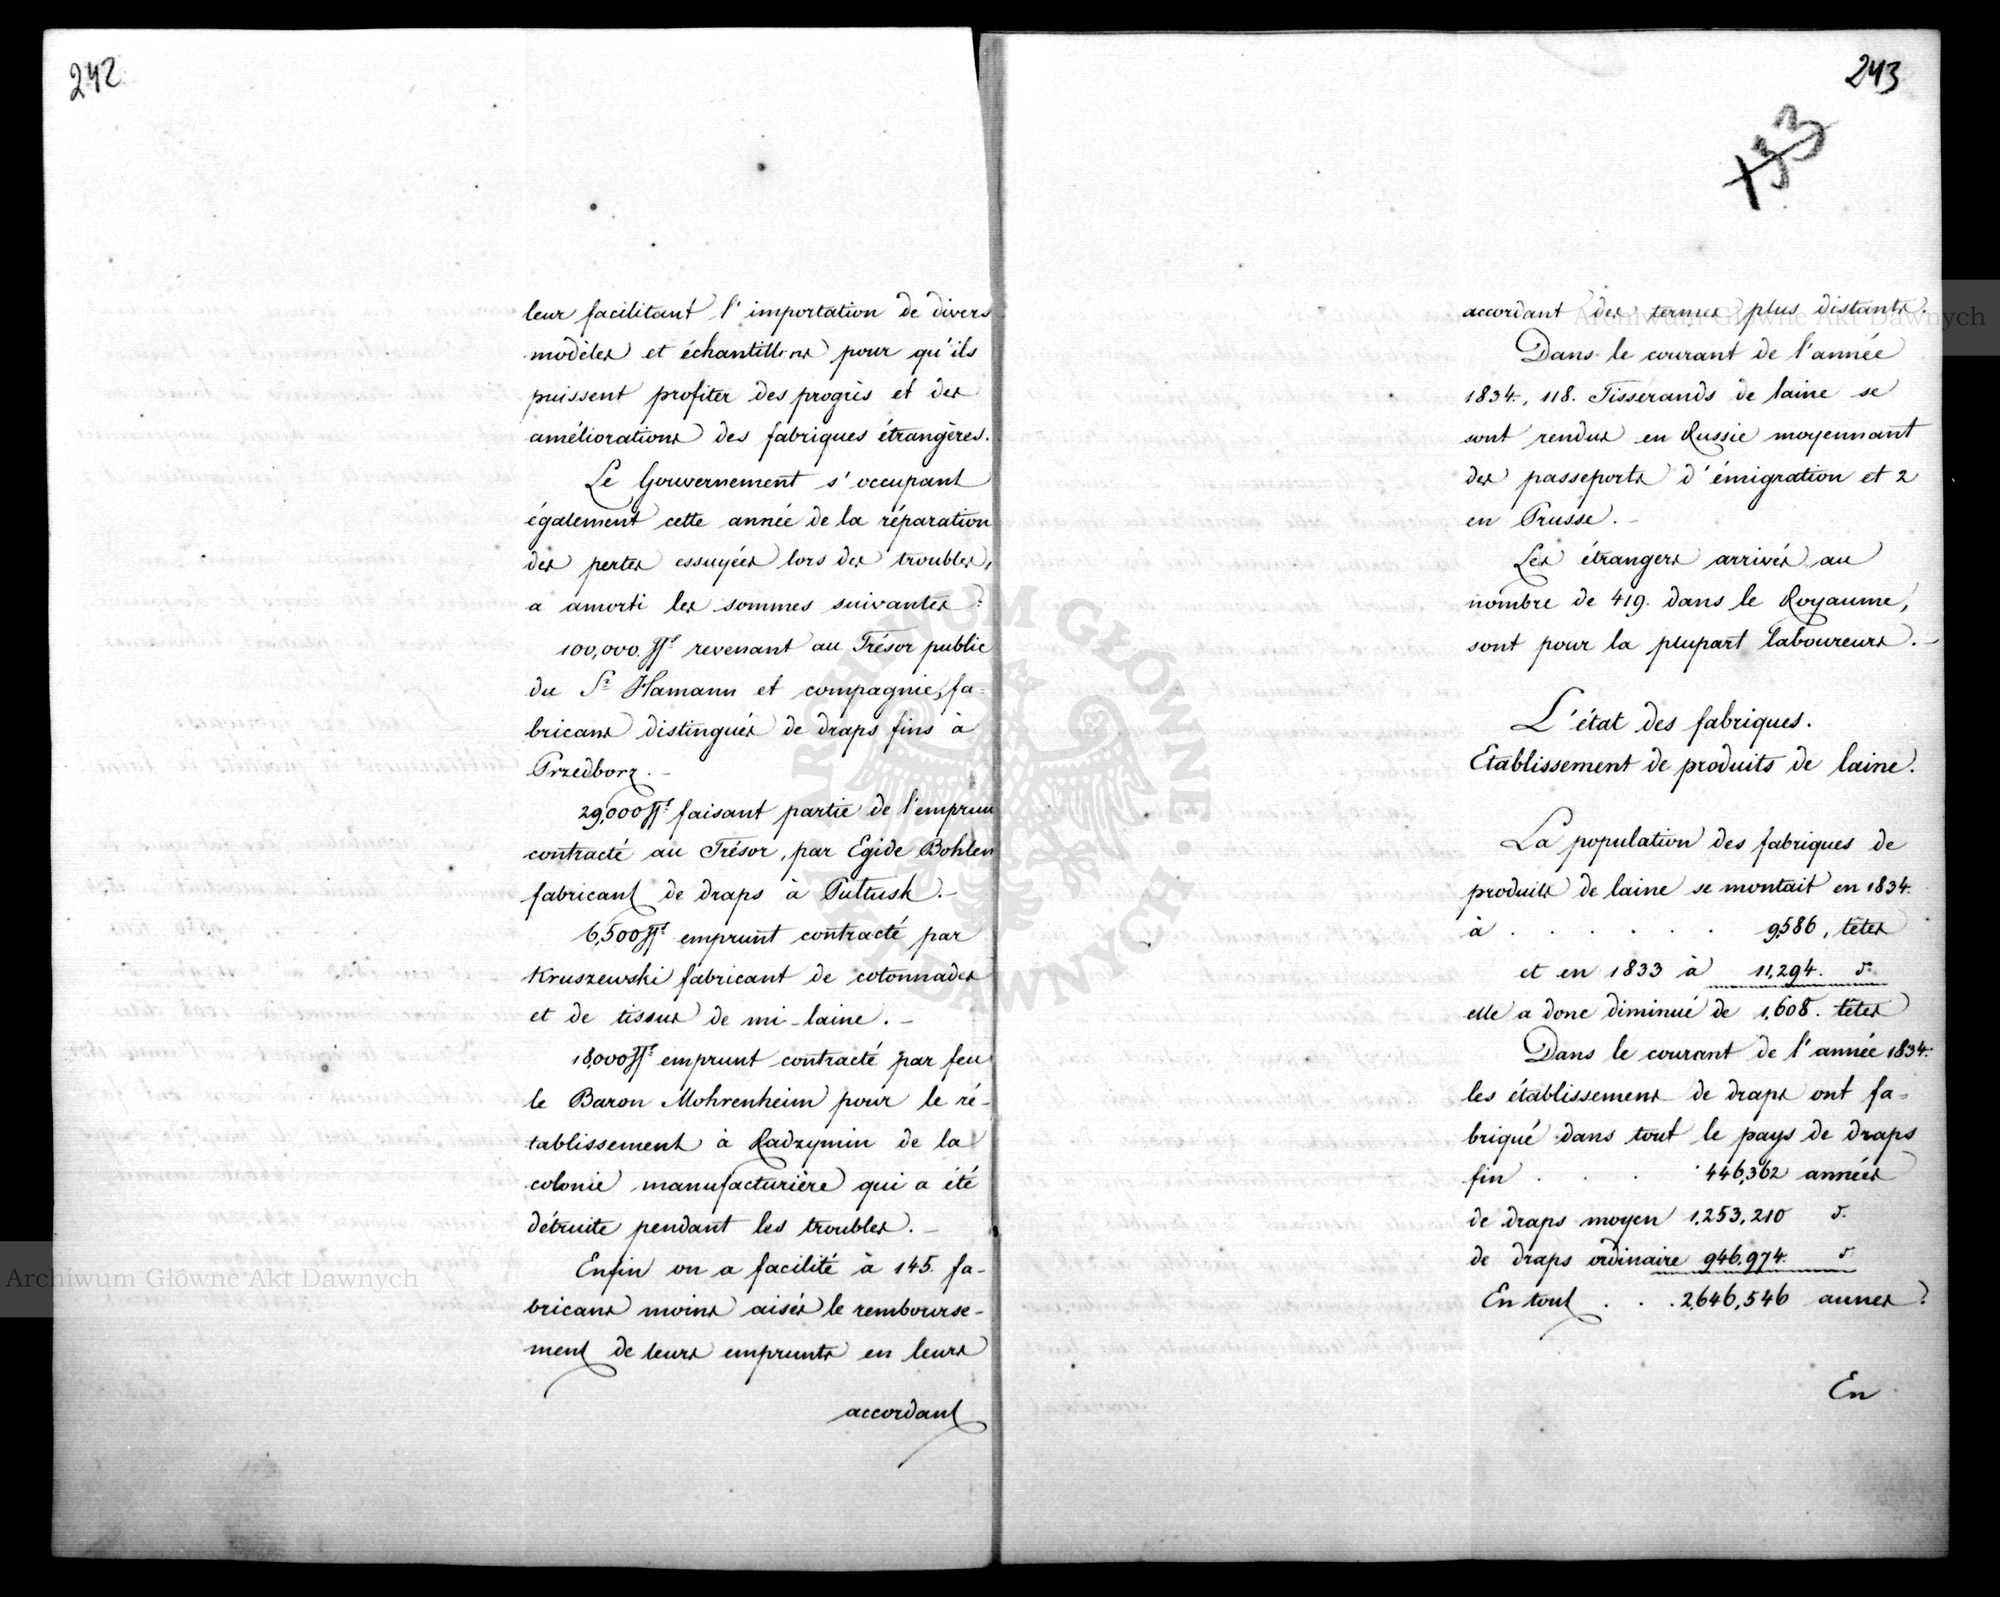 242
leur facilitant l'importation de divers
modèles et échantillons pour qu'ils
puissent profiter des progrès et des
améliorations des fabriques étrangères.
Le Gouvernement s'occupant
également cette année de la réparation
des pertes essuyées lors des troubles,
a amorti les sommes suivantes:
100,000 ff. revenant au Trésor public
du Sr. Hamann et compagnie, fa-
bricans distingués de draps fins à
Przedborz.-
29,000 ff. faisant partie de l'emprun
contracté au Trésor, par Egide Bohlen
fabricant de draps à Pultusk.-
6,500 ff. emprunt contracté par
Kruszewski fabricant de cotonnades
et de tissus de mi-laine.-
18,000 ff. emprunt contracté par feu
le Baron Mohrenheim pour le ré-
tablissement à Radzymin de la
colonie manufacturière qui a été
détruite pendant les troubles.-
Enfin on a facilité à 145. fa-
bricans moins aisés le rembourse-
ment de leurs emprunts en leurs
accordant
243
133
accordant des termes plus distants.
Dans le courant de l'année
1834., 118. Tisserands de laine se
sont rendus en Russie moyennant
des passeports d'émigration et 2
en Prusse.-
Les étrangers arrivés au
nombre de 419. dans le Royaume,
sont pour la plupart laboureurs.-
L'état des fabriques.
Etablissement de produits de laine.
La population des fabriques de
produits de laine se montait en 1834.
à . . . . . . 9,586, têtes
et en 1833 à 11,294. d.
elle a donc diminué de 1,608. têtes
Dans le courant de l'année 1834.
les établissemens de draps ont fa-
briqué dans tout le pays de draps
fin . . . 446,362 années
de draps moyen 1,253,210 d.
de draps ordinaire 946,974. d.
En tout . . . 2,646,546 aunes.
En
Archiwum Główne Akt Dawnych
Archiwum Główne Akt Dawnych
ARCHIWUM GŁÓWNE AKT DAWNYCH